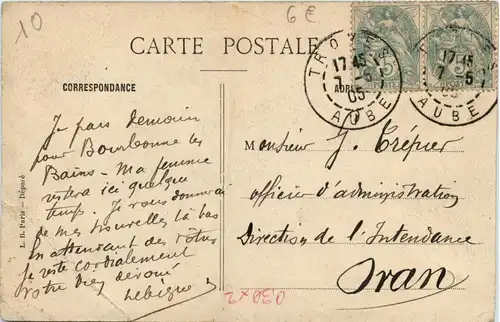 10
6€
CARTE POSTALE
CORRESPONDANCE
TROYES
17 45
7 - 5
05
AUBE
TROYES
17 45
7 5
05
AUBE
5
5
Je pars demain
pour Bourbonne les
Bains - Ma femme
restera ici quelque
temps. Je vous donnerai
de mes nouvelles la bas
En attendant des vôtres
je reste cordialement
votre bien dévoué
Lebègue
L. B. Paris — Déposé
Monsieur J. Crépier
officier d'administration
Direction de l'Intendance
Oran